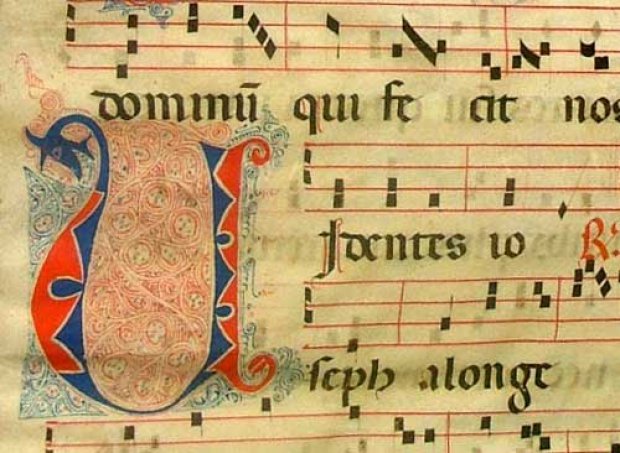 dominū qui fe cit nos
VIdentes io R:
seph alonge